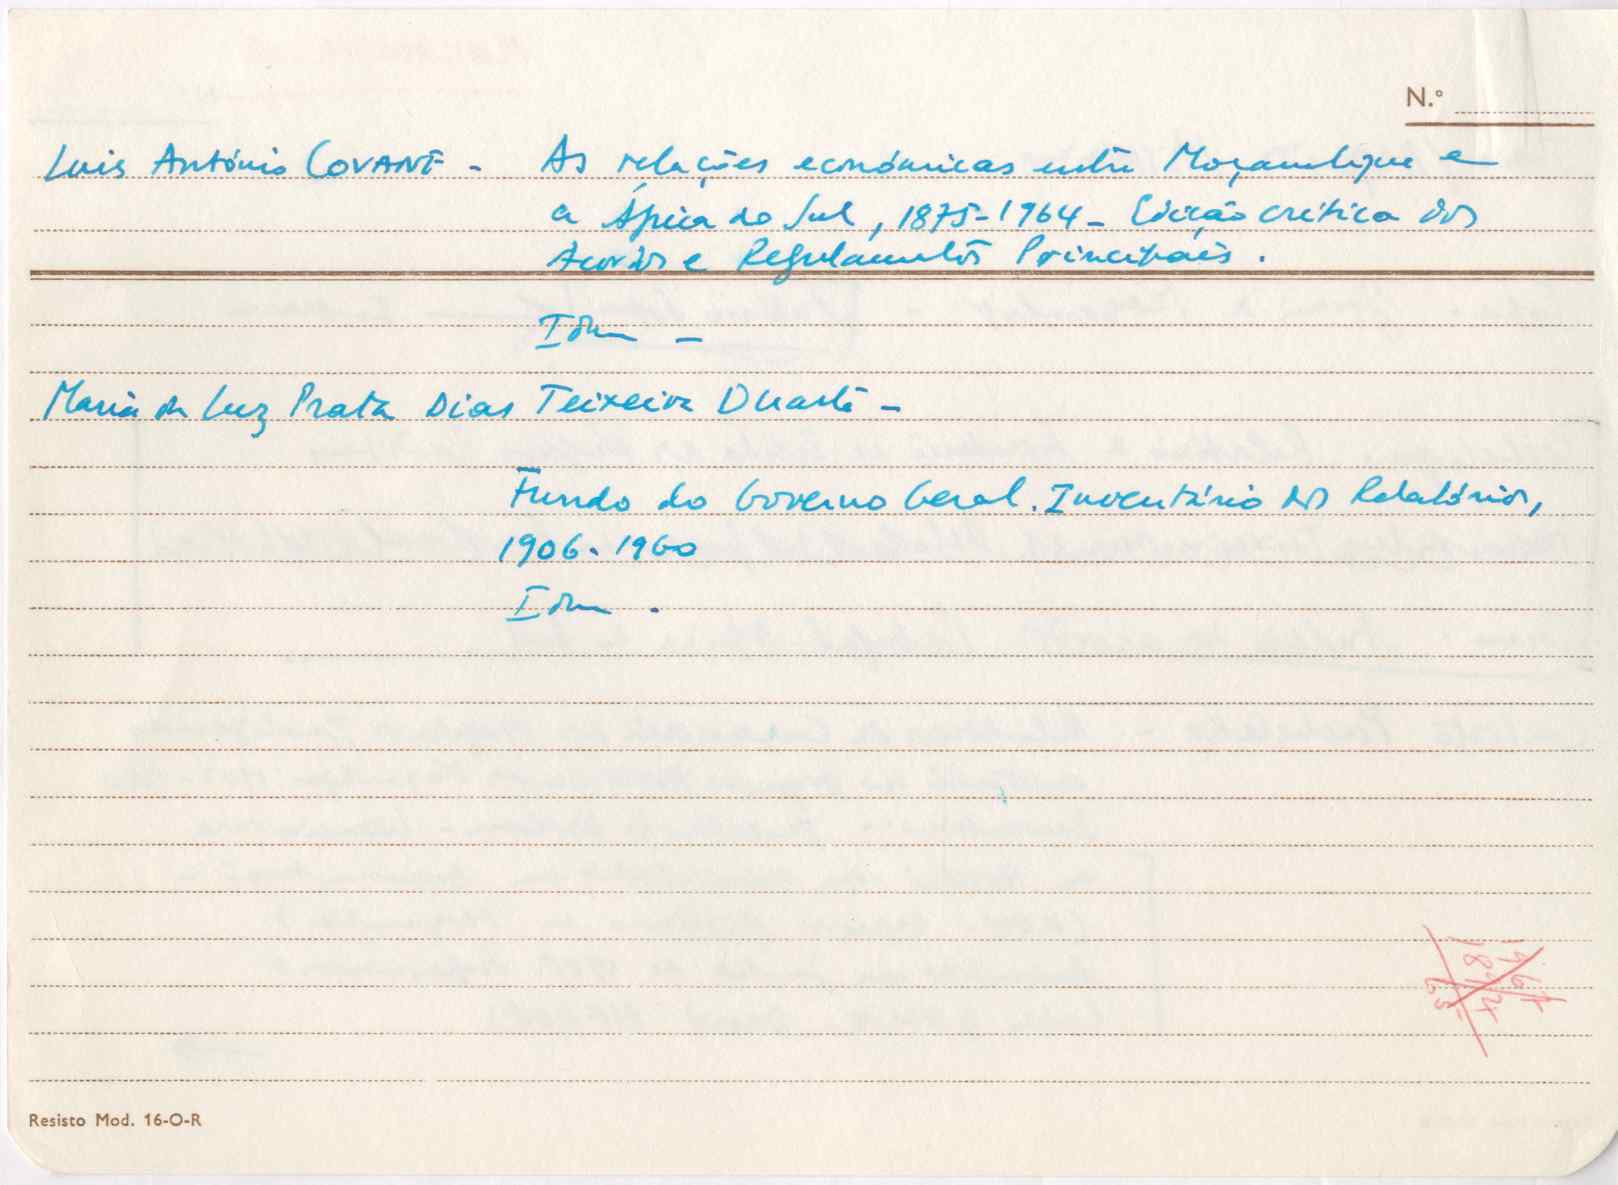 N.º
Luis António COVANE - As relações económicas entre Moçambique e
a África do Sul, 1875-1964 - Edição crítica dos
Acordos e Regulamentos Principais.
Idem -
Maria da Luz Prata Dias Teixeira Duarte -
Fundo do Governo Geral. Inventário dos Relatórios,
1906-1960
Idem.
1964
Resisto Mod. 16-O-R